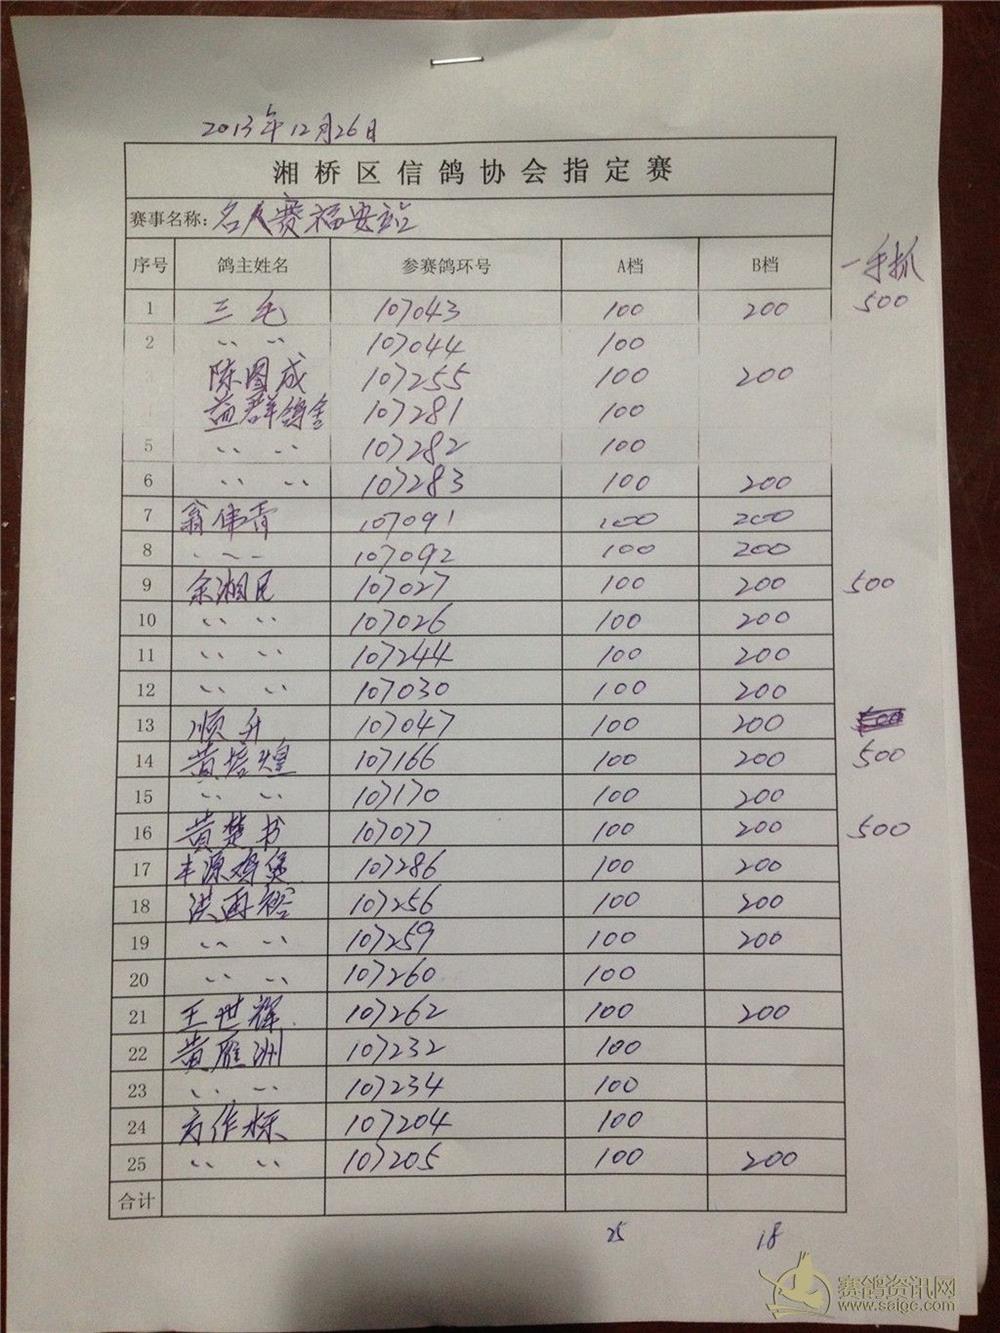 2013年12月26日
湘桥区信鸽协会指定赛
赛事名称：名人赛福安站
序号 鸽主姓名 参赛鸽环号 A档 B档 一手抓
1 三毛 107043 100 200 500
2 〃 〃 107044 100
3 陈图成 107255 100 200
益群鸽舍 107281 100
5 〃 〃 107282 100
6 〃 〃 107283 100 200
7 翁伟青 107091 100 200
8 〃 〃 107092 100 200
9 余湘民 107027 100 200 500
10 〃 〃 107026 100 200
11 〃 〃 107244 100 200
12 〃 〃 107030 100 200
13 顺升 107047 100 200
14 黄培煌 107166 100 200 500
15 〃 〃 107170 100 200
16 黄楚书 107077 100 200 500
17 丰源鸡煲 107286 100 200
18 洪再 107256 100 200
19 〃 〃 107259 100 200
20 〃 〃 107260 100
21 王世辉 107262 100 200
22 黄雁洲 107232 100
23 〃 〃 107234 100
24 方作标 107204 100
25 〃 〃 107205 100 200
合计
25 18
赛鸽资讯网
www.saigc.com